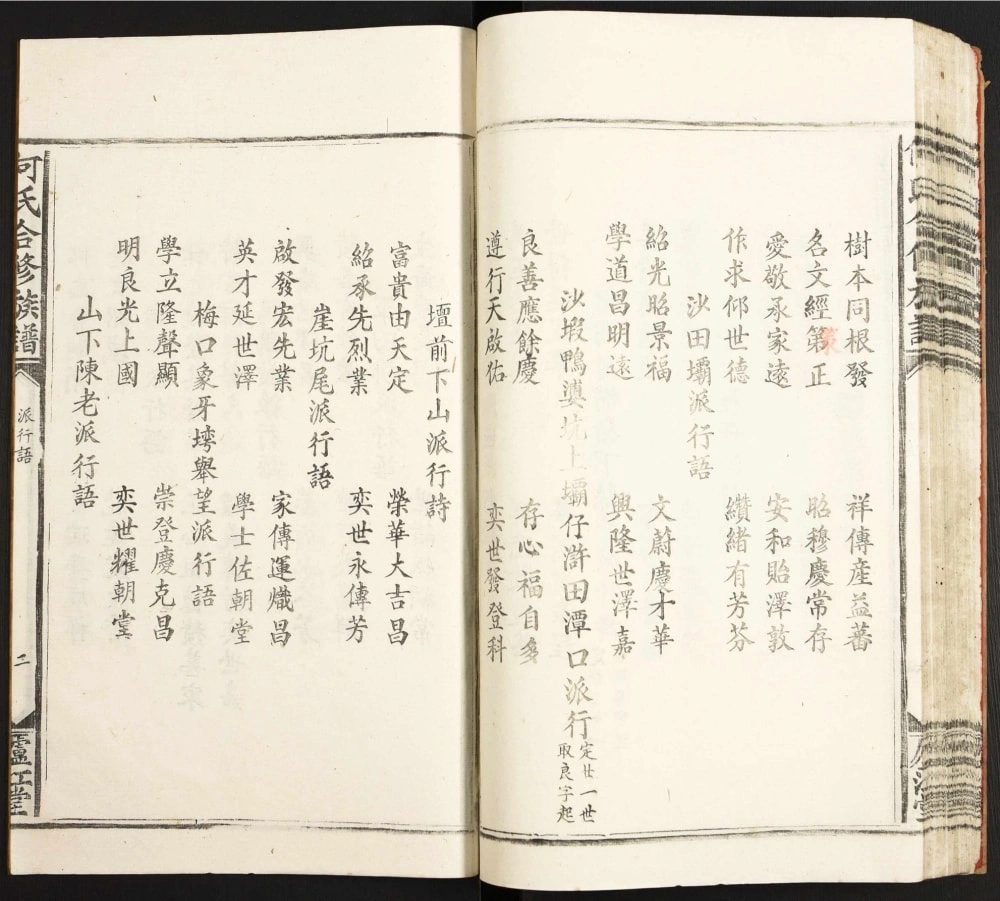 樹本同根發 祥傳産益蕃
名文經第正 昭穆慶常存
愛敬承家遠 安和貽澤敦
作求仰世德 纘緒有芳芬
沙田壩派行語
紹光昭景福 文蔚慶才華
學道昌明遠 興隆世澤嘉
沙塅鴨婆坑上壩仔滸田潭口派行
定廿一世
取良字起
良善應餘慶 存心福自多
遵行天啟佑 奕世發登科
壇前下山派行詩
富貴由天定 榮華大吉昌
紹承先烈業 奕世永傳芳
崖坑尾派行語
啟發宏先業 家傳運熾昌
英才延世澤 學士佐朝堂
梅口象牙塆舉望派行語
學立隆聲顯 崇登慶克昌
明良光上國 奕世耀朝堂
山下陳老派行語
何氏合修族譜
派行語
三
廬江堂